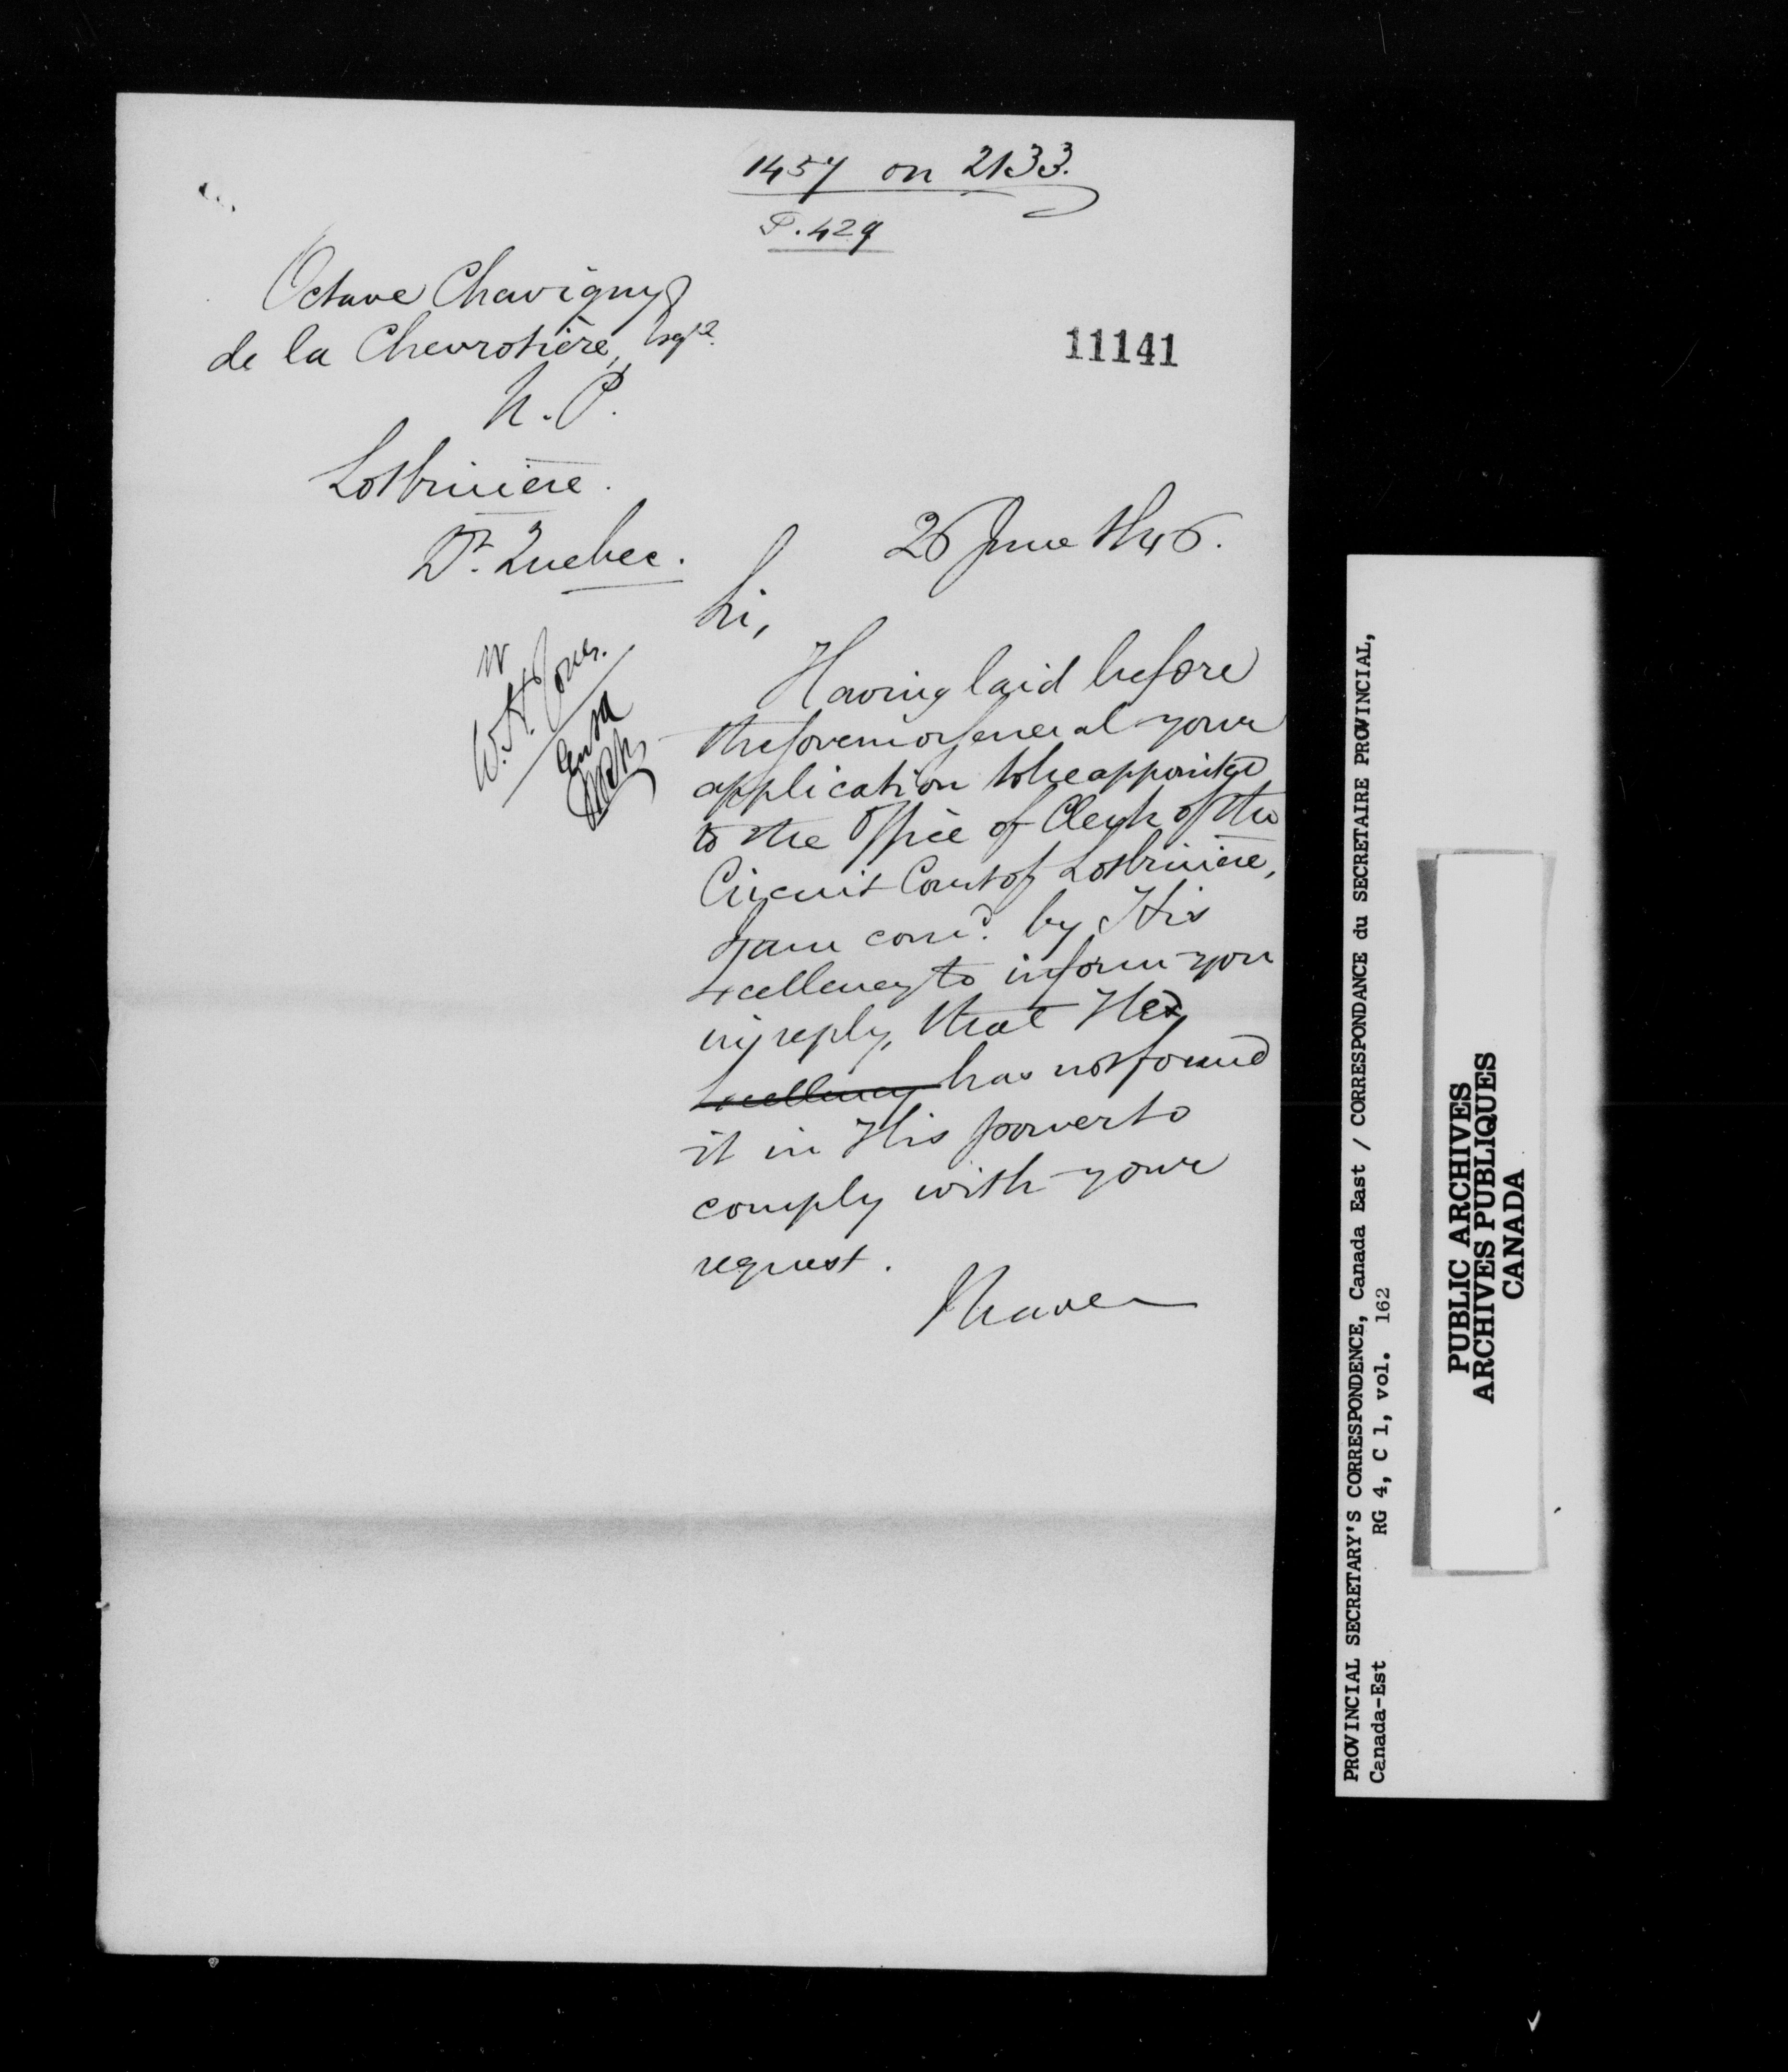 1457 on 2133.
P. 429
Octave Chavigny
de la Chevrotière, Esqre.
N. P.
Lotbinière.
Dt. Quebec.
11141
26 June 1846.
Sir,
W. H. Jones.
Having laid before
the Governor General your
application to be appointed
to the Office of Clerk of the
Circuit Court of Lotbinière,
I am comd. by His
Excellency to inform you
in reply, that He
Excellency has not found
it in His power to
comply with your
request.
I have
PROVINCIAL SECRETARY'S CORRESPONDENCE, Canada East / CORRESPONDANCE du SECRETAIRE PROVINCIAL,
Canada-Est RG 4, C 1, vol. 162
PUBLIC ARCHIVES
ARCHIVES PUBLIQUES
CANADA